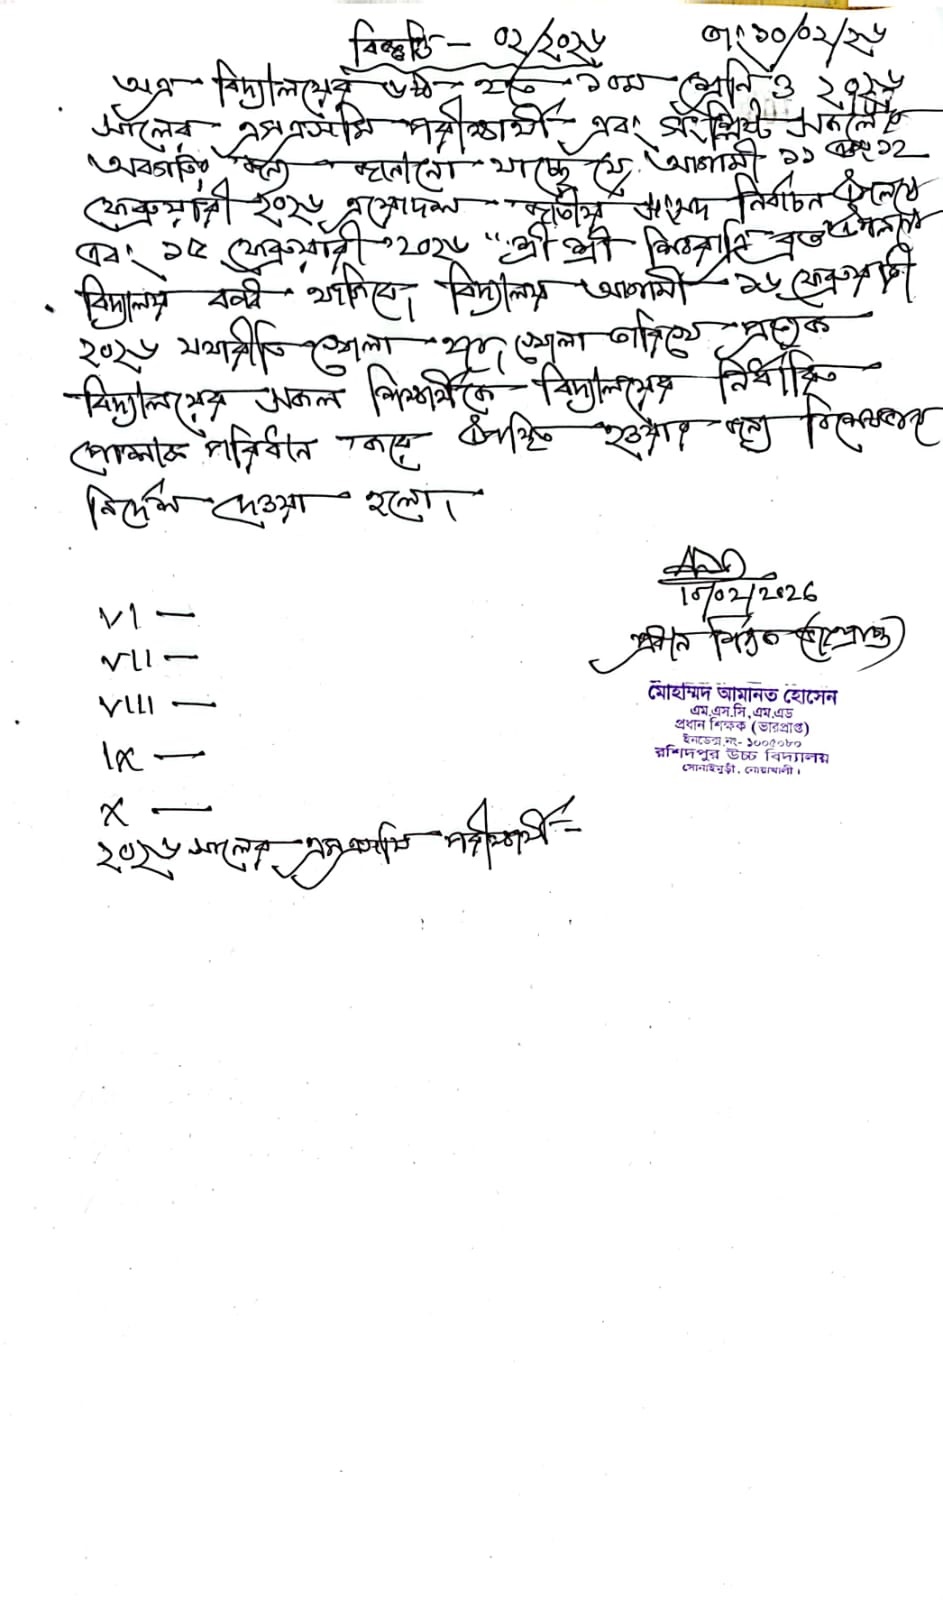 বিজ্ঞপ্তি - ০২/২০২৬ তাং ১০/০২/২৬
অত্র বিদ্যালয়ের ৬ষ্ঠ হতে ১০ম শ্রেনি ও ২০২৬
সালের এসএসসি পরীক্ষার্থী এবং সংশ্লিষ্ট সকলের
অবগতির জন্য জানানো যাচ্ছে যে আগামী ১১ এবং ১২
ফেব্রুয়ারী ২০২৬ ত্রয়োদশ জাতীয় সংসদ নির্বাচন উপলক্ষে
এবং ১৫ ফেব্রুয়ারী ২০২৬ "শ্রী শ্রী শিবরাত্রি ব্রত উপলক্ষে
বিদ্যালয় বন্ধ থাকিবে। বিদ্যালয় আগামী ১৬ ফেব্রুয়ারী
২০২৬ যথারীতি খোলা খোলা তারিখে প্রত্যেক
বিদ্যালয়ের সকল শিক্ষার্থীকে বিদ্যালয়ের নির্ধারিত
পোশাক পরিধান করে উপস্থিত হওয়ার জন্য বিশেষভাবে
নির্দেশ দেওয়া হলো।
10/02/2026
প্রধান শিক্ষক (ভারপ্রাপ্ত)
মোহাম্মদ আমানত হোসেন
এম.এস.সি, এম.এড
প্রধান শিক্ষক (ভারপ্রাপ্ত)
ইনডেক্স নং- ১০০৫০৮০
রশিদপুর উচ্চ বিদ্যালয়
সোনাইমুড়ী, নোয়াখালী।
VI —
VII —
VIII —
IX —
X —
২০২৬ সালের এসএসসি পরীক্ষার্থী -